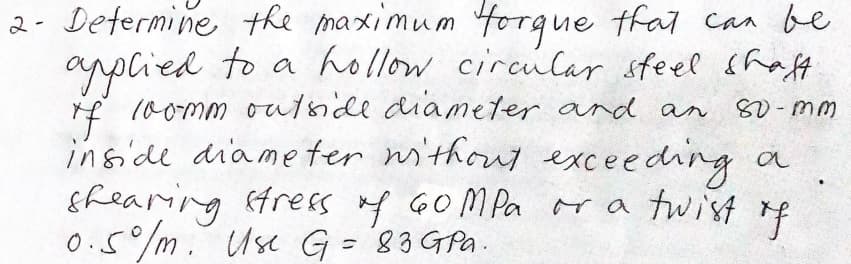 2- Determine the maximum torque that can be
applied to a hollow circular steel shaft
of 100-mm outside diameter and an 80-mm
inside diameter without exceeding a
shearing stress of 60 MPa or a twist of
0.5°/m. Use G = 83 GPa.